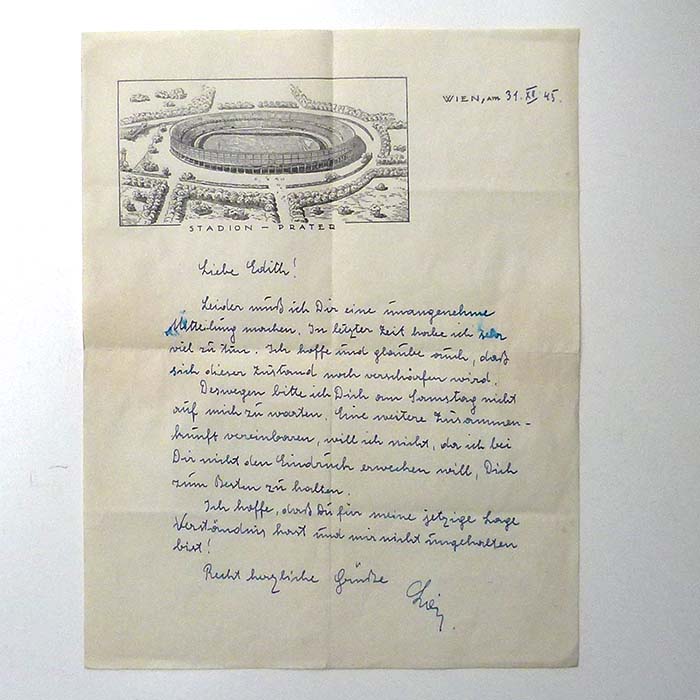 WIEN, am 31. XII 45.
STADION - PRATER
Liebe Edith!
Leider muß ich Dir eine unangenehme
Mitteilung machen. In letzter Zeit habe ich sehr
viel zu tun. Ich hoffe und glaube auch, daß
sich dieser Zustand noch verschärfen wird.
Deswegen bitte ich Dich am Samstag nicht
auf mich zu warten. Eine weitere Zusammen-
kunft vereinbaren, will ich nicht, da ich bei
Dir nicht den Eindruck erwecken will, Dich
zum Besten zu halten.
Ich hoffe, daß Du für meine jetzige Lage
Verständnis hast und mir nicht ungehalten
bist!
Recht herzliche Grüße